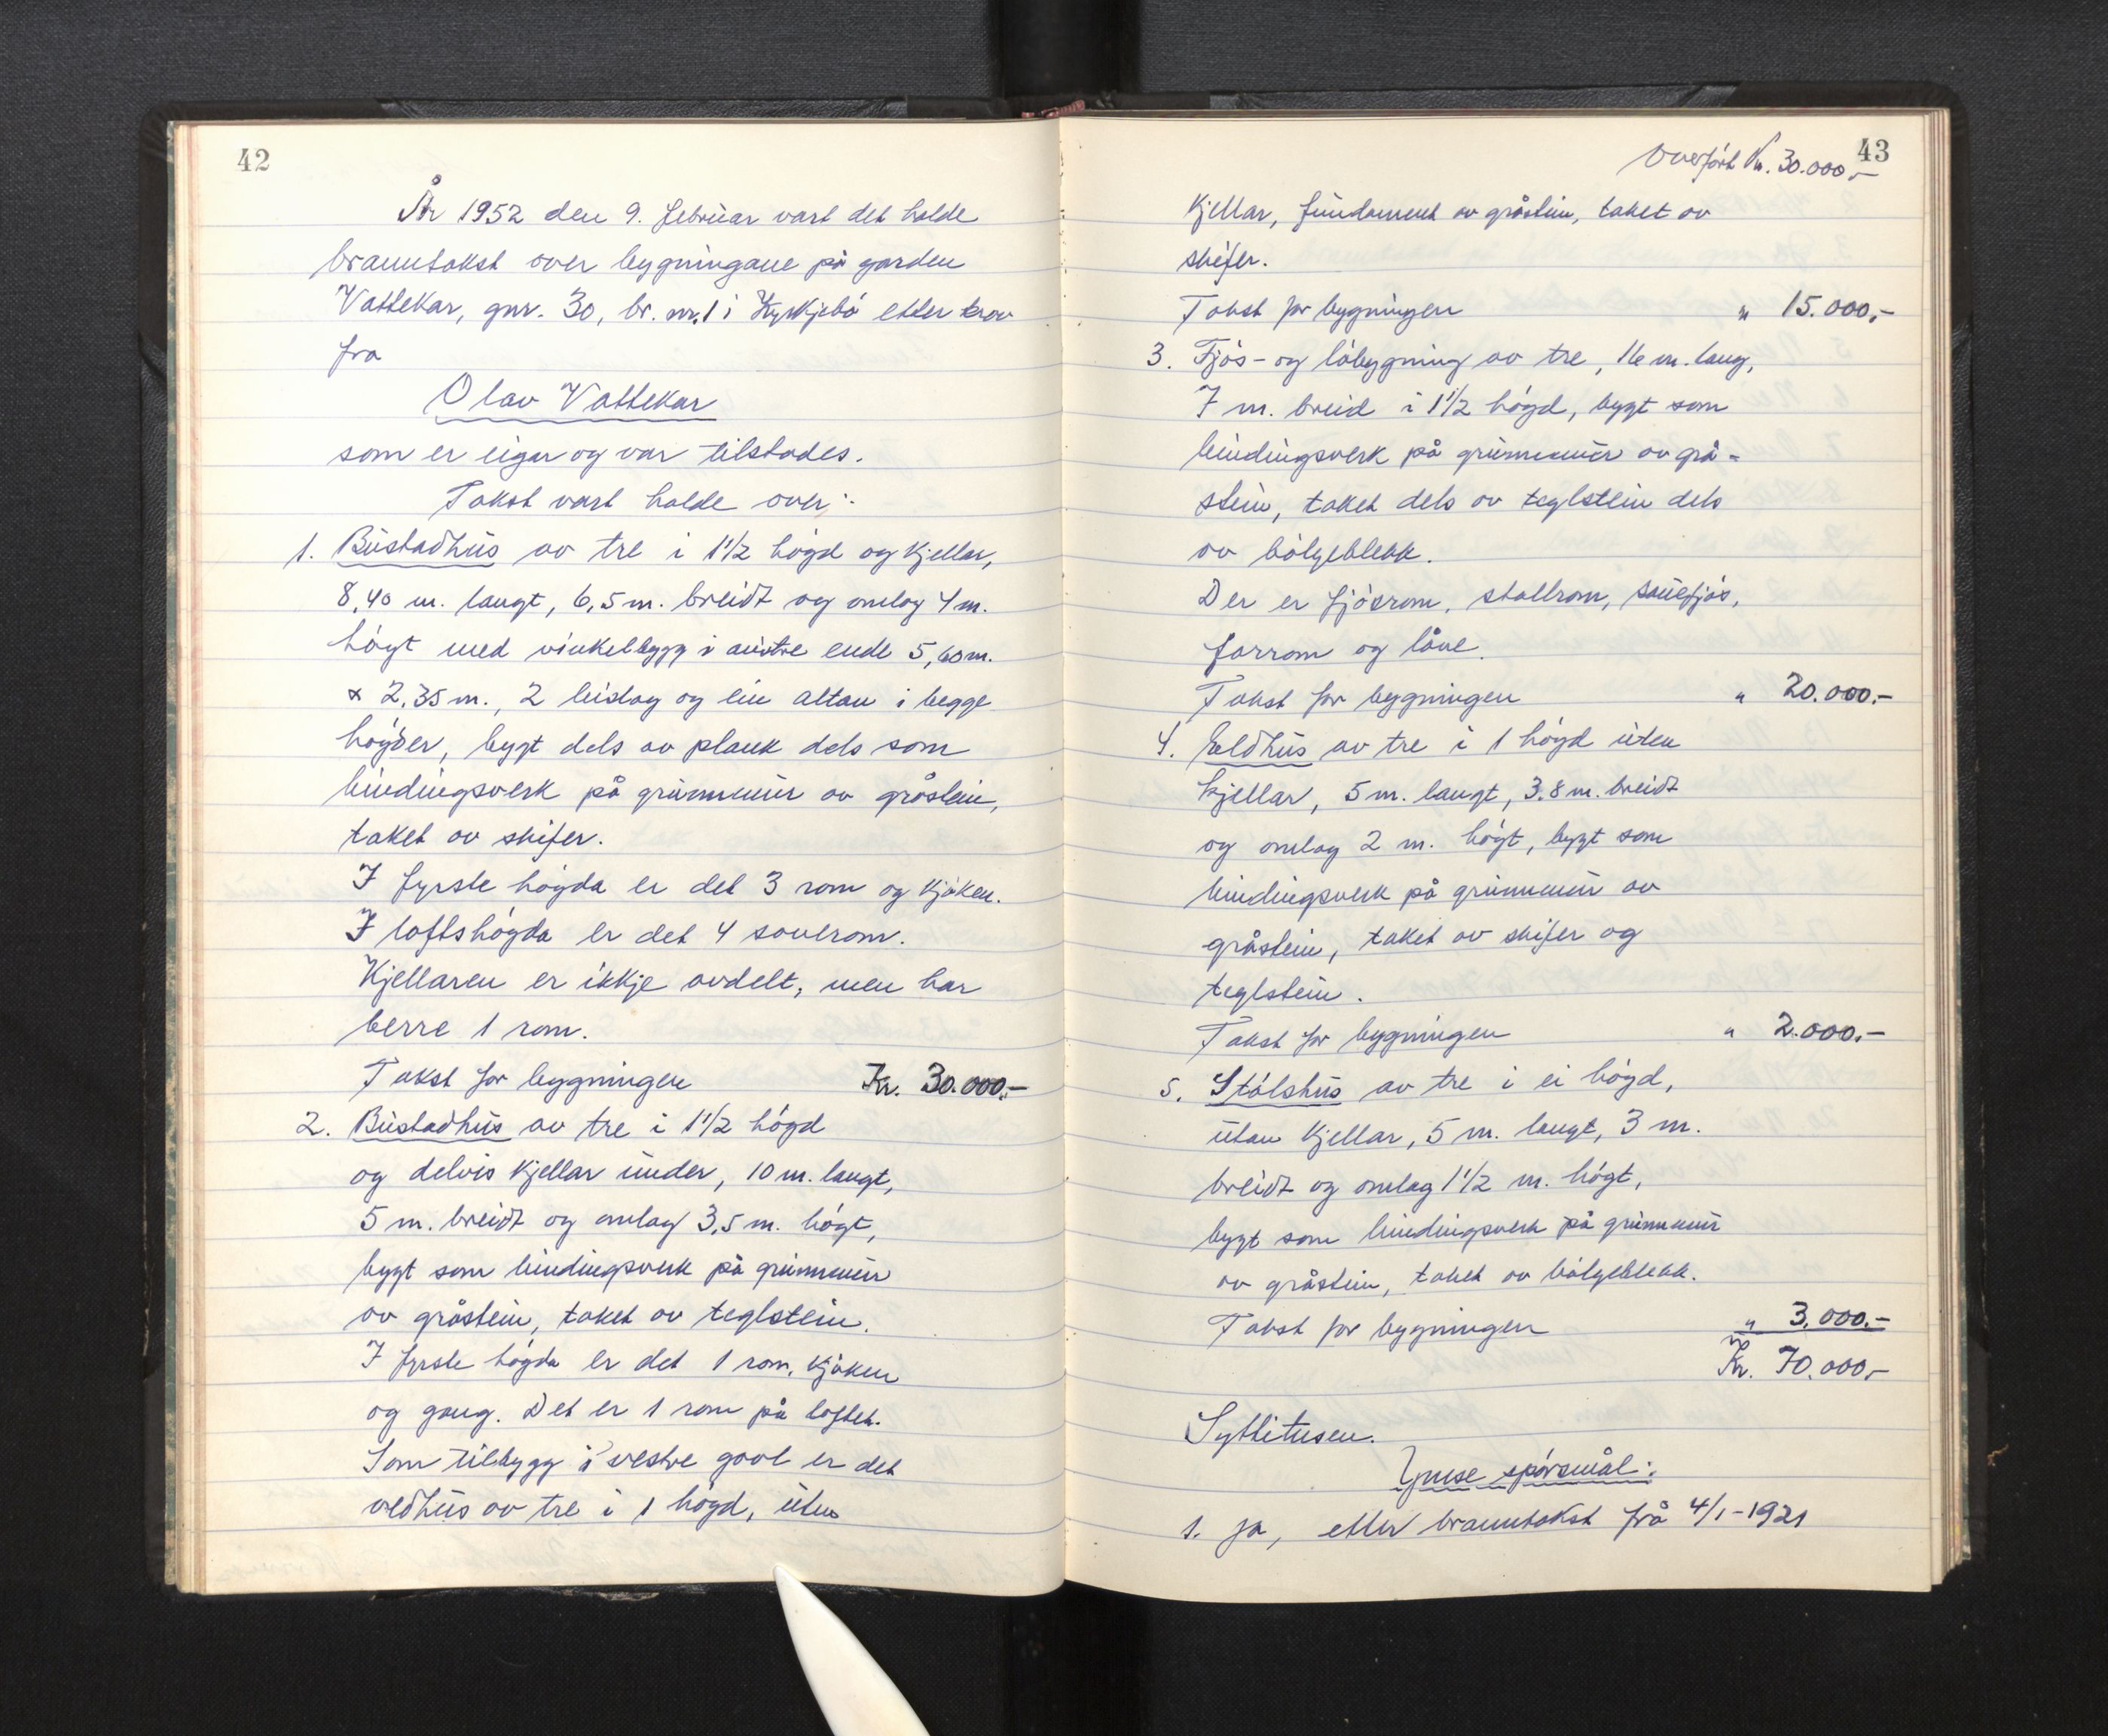 42
År 1952 den 9. februar vart det halde
branntakst over bygningane på garden
Vattekar, gnr. 30, br. nr. 1 i Kyrkjebö etter krav
fra
Olav Vattekar
som er eigar og var tilstades.
Takst vart halde over:
1. Bustadhus av tre i 1 1/2 högd og kjellar,
8,40 m. langt, 6,5 m. breidt og omlag 4 m.
högt med vinkelbygg i austre ende 5,60 m.
x 2,35 m., 2 bislag og ein altan i begge
högder, bygt dels av plank dels som
bindingsverk på grunnmur av gråstein,
taket av skifer.
I fyrste högda er det 3 rom og kjöken.
I loftshögda er det 4 soverom.
Kjellaren er ikkje avdelt, men har
berre 1 rom.
Takst for bygningen Kr. 30.000,-
2. Bustadhus av tre i 1 1/2 högd
og delvis kjellar under, 10 m. langt,
5 m. breidt og omlag 3,5 m. högt,
bygt som bindingsverk på grunnmur
av gråstein, taket av teglstein.
I fyrste högda er det 1 rom, kjöken
og gang. Det er 1 rom på loftet.
Som tilbygg i vestre gavl er det
vedhus av tre i 1 högd, uten
43
Overfört Kr. 30.000,-
kjellar, fundament av gråstein, taket av
skifer.
Takst for bygningen " 15.000,-
3. Fjös- og löbygning av tre, 16 m. lang,
7 m. breid i 1 1/2 högd, bygt som
bindingsverk på grunnmur av grå-
stein, taket dels av teglstein dels
av bölgeblekk.
Der er fjösrom, stallrom, sauefjös,
forrom og låve.
Takst for bygningen " 20.000,-
4. Eldhus av tre i 1 högd uten
kjellar, 5 m. langt, 3.8 m. breidt
og omlag 2 m. högt, bygt som
bindingsverk på grunnmur av
gråstein, taket av skifer og
teglstein.
Takst for bygningen " 2.000,-
5. Stölshus av tre i ei högd,
utan kjellar, 5 m. langt, 3 m.
breidt og omlag 1 1/2 m. högt,
bygt som bindingsverk på grunnmur
av gråstein, taket av bölgeblekk.
Takst for bygningen " 3.000,-
Kr. 70.000,-
Syttitusen.
Ymse spörsmål:
1. Ja, etter branntakst frå 4/1-1921